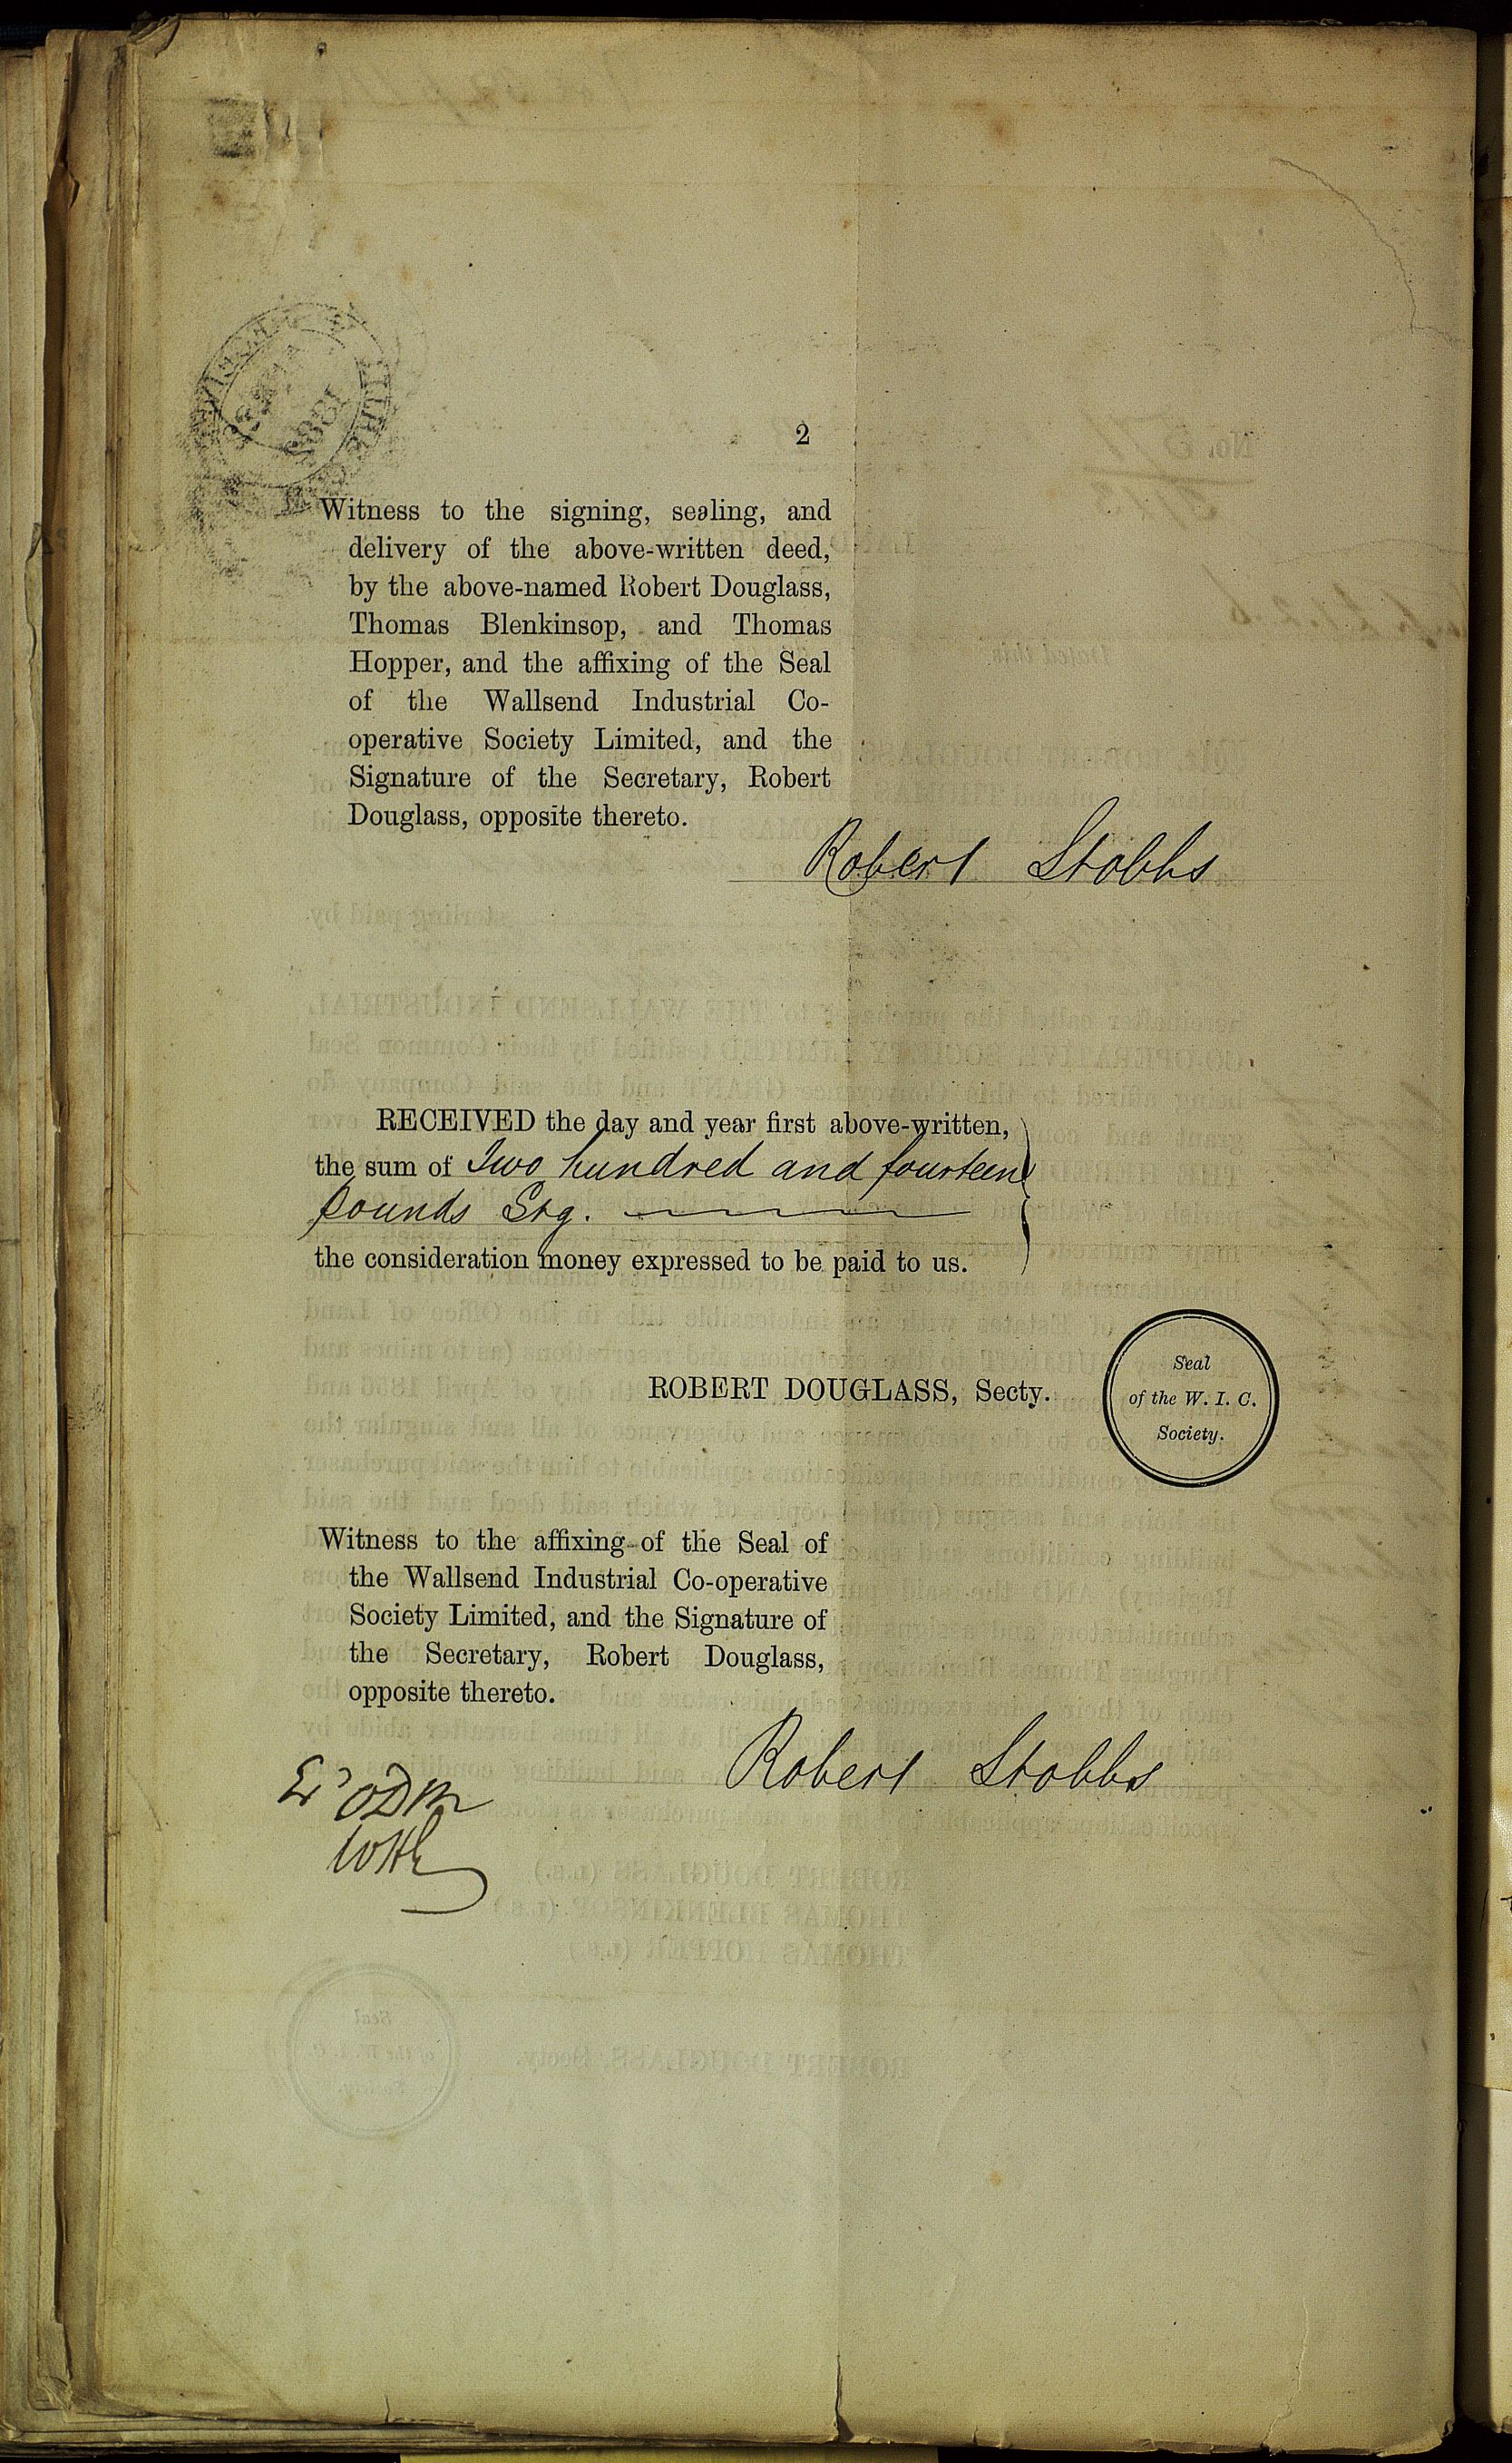 2
Witness to the signing, sealing, and
delivery of the above-written deed,
by the above-named Robert Douglass,
Thomas Blenkinsop, and Thomas
Hopper, and the affixing of the Seal
of the Wallsend Industrial Co-
operative Society Limited, and the
Signature of the Secretary, Robert
Douglass, opposite thereto.
Robert Stobbs
RECEIVED the day and year first above-written,
the sum of Two hundred and fourteen
pounds Stg.
the consideration money expressed to be paid to us.
ROBERT DOUGLASS, Secty.
Seal
of the W. I. C.
Society.
Witness to the affixing of the Seal of
the Wallsend Industrial Co-operative
Society Limited, and the Signature of
the Secretary, Robert Douglass,
opposite thereto.
Robert Stobbs